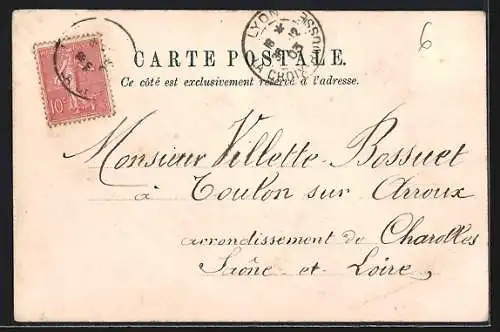 6
CARTE POSTALE.
Ce côté est exclusivement réservé à l'adresse.
10c
LYON
LA CROIX ROUSSE
Monsieur Villette-Bossuet
à Toulon sur Arroux
arrondissement de Charolles
Saône-et-Loire,